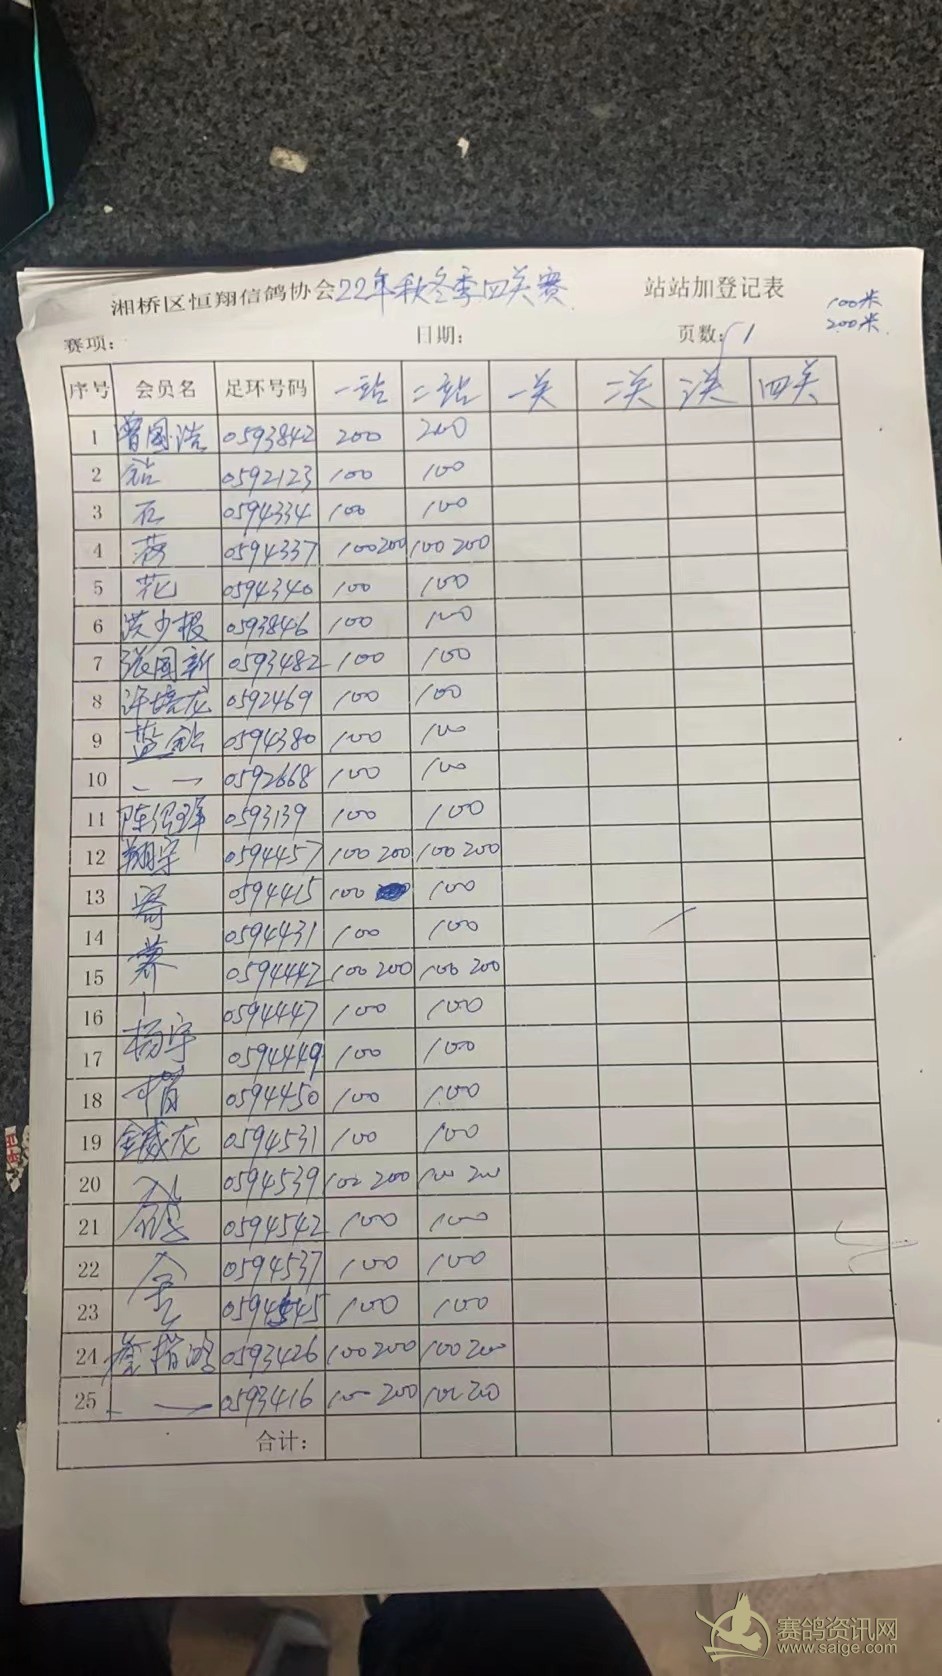 湘桥区恒翔信鸽协会22年秋冬季四关赛 站站加登记表
100米
200米
赛项: 日期: 页数: 1
序号 会员名 足环号码 一站 二站 一关 二关 三关 四关
1 曾国浩 0593842 200 200
2 钻 0592123 100 100
3 石 0594334 100 100
4 荷 0594337 100 200 100 200
5 花 0594340 100 100
6 洪少根 0593846 100 100
7 张国新 0593482 100 100
8 许培龙 0592469 100 100
9 蓝 0594380 100 100
10 0592668 100 100
11 陈 0593139 100 100
12 翔宇 0594457 100 200 100 200
13 0594415 100 100
14 0594431 100 100
15 0594442 100 200 100 200
16 0594447 100 100
17 杨宇 0594449 100 100
18 0594450 100 100
19 龙 0594531 100 100
20 0594539 100 200 100 200
21 0594542 100 100
22 0594537 100 100
23 0594545 100 100
24 0593426 100 200 100 200
25 0593416 100 200 100 200
合计:
赛鸽资讯网
www.saige.com